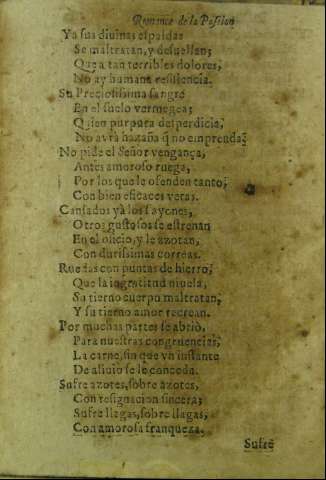 Romance de la Passion
Ya sus diuinas espaldas
Se maltratan, y desuellan;
Que a tan terribles dolores,
No ay humana resistencia.
Su Preciosissima sangre
En el suelo vermegea;
Quien purpura desperdicia,
No avrà hazaña q̃ no emprenda?
No pide el Señor vengança,
Antes amoroso ruega,
Por los que le ofenden tanto,
Con bien eficaces veras.
Cansados yà los sayones,
Otros gustosos se estrenan
En el oficio, y le azotan,
Con durissimas correas.
Ruedas con puntas de hierro,
Que la ingratitud nivela,
Su tierno cuerpo maltratan,
Y su tierno amor recrean.
Por muchas partes se abriò,
Para nuestras congruencias,
La carne, sin que vn instante
De aliuio se le conceda.
Sufre azotes, sobre azotes,
Con resignacion sincera;
Sufre llagas, sobre llagas,
Con amorosa franqueza.
Sufre